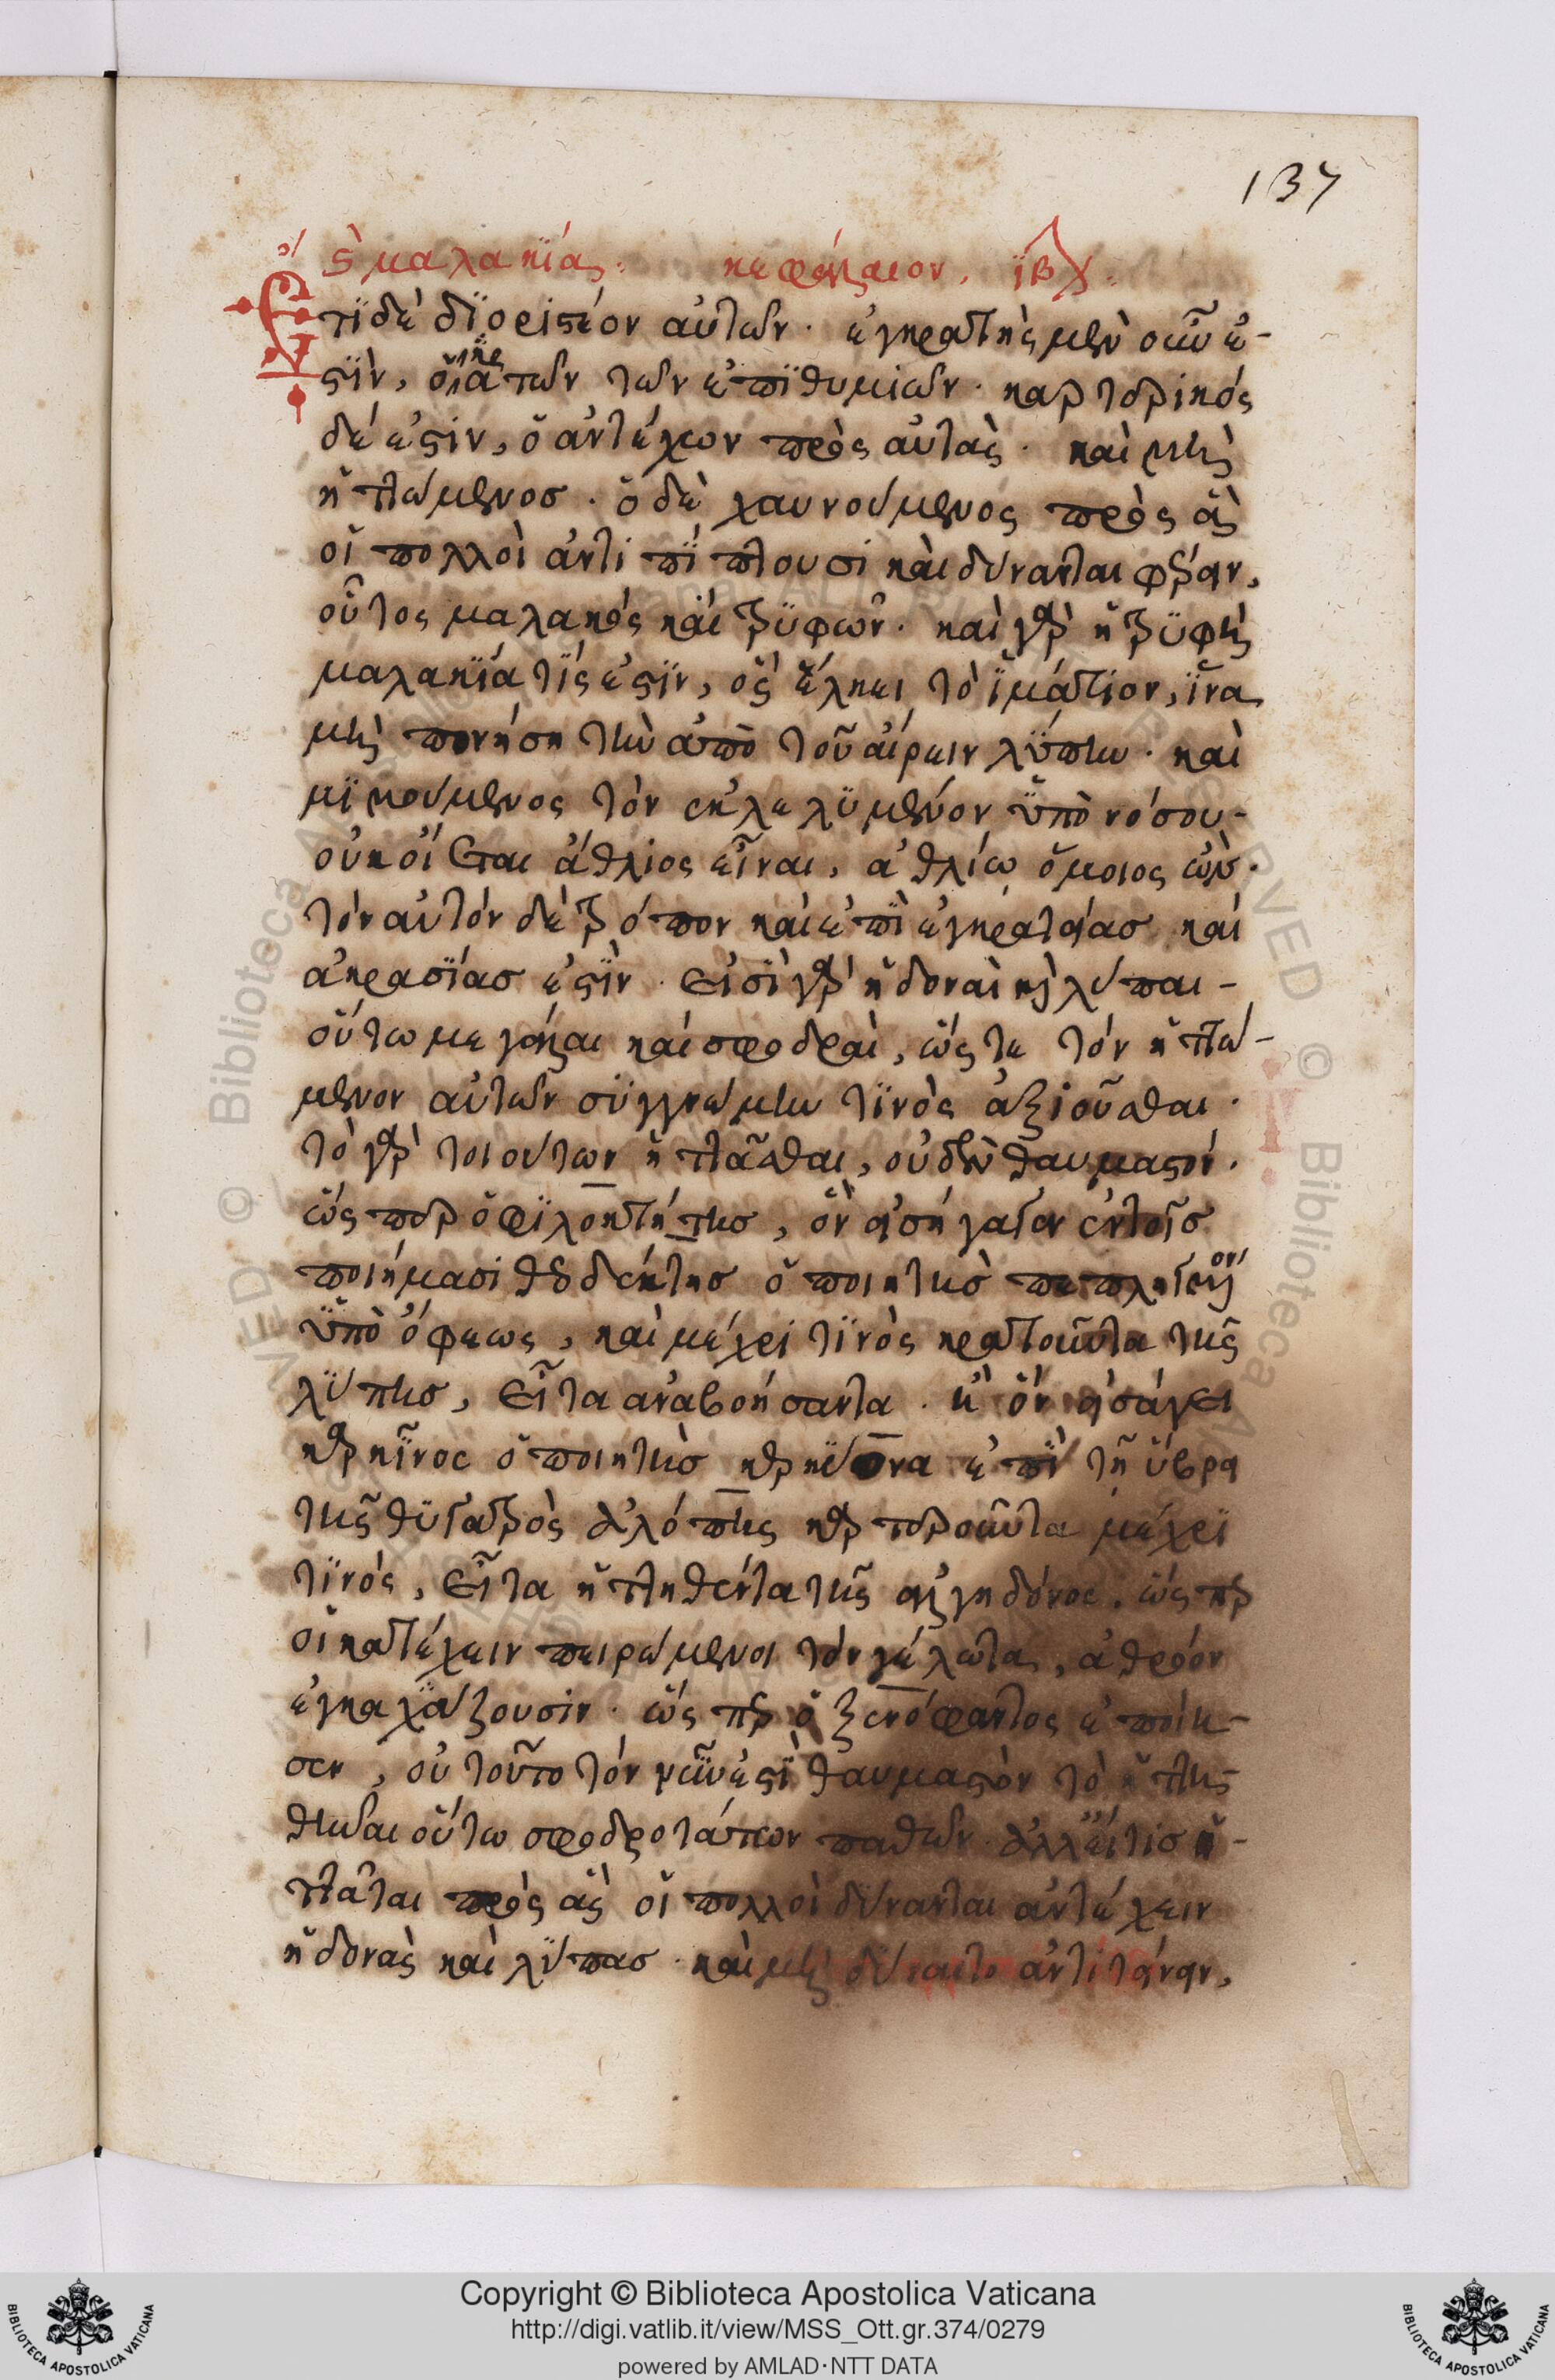 137
ς μαλακΐας· κεφάλαιον, ϊβον·
Ετϊ δὲ δϊοριστέον αὐτῶν· ἐγκρατὴς μὲν οὖν ἐ-
στϊν, ὁ κρατῶν τῶν ἐπϊθυμιῶν· καρτερικός
δέ ἐστιν, ὁ ἀντέχων πρὸς αὐτὰς· καὶ μὴ
ἡττώμενοσ· ὁ δὲ χαυνούμενος πρὸς ἃς
οἱ πολλοὶ ἀντιπΐπτουσι καὶ δύνανται φέρειν,
οὗτος μαλακός καὶ τρϋφῶν· καὶ γὰρ ἡ τρϋφὴ
μαλακΐα τΐς ἐστϊν, ὃς ἕλκει τὸ ἱμάτιον, ἵνα
μὴ πονήση τὴν ἀπὸ τοῦ αἴρειν λύπην· καὶ
μϊμούμενος τὸν ἐκλελϋμένον ὑπὸ νόσου-
οὐκ οἴεται ἄθλιος εἶναι, ἀθλίω ὅμοιος ὢν·
τὸν αὐτὸν δὲ τρόπον καὶ ἐπῒ ἐγκρατείασ καὶ
ἀκρασΐασ ἐστϊν· εἰσῒ γὰρ ἡδοναὶ καὶ λύπαι-
οὕτω μεγάλαι καὶ σφοδραὶ, ὥς τε τὸν ἡττώ-
μενον αὐτῶν συγγνώμην τϊνὸς ἀξιοῦσθαι·
τὸ γὰρ τοιούτων ἡττᾶσθαι, οὐδὲν θαυμαστόν·
ὥς περ ὁ φϊλοκτήτησ, ὃν εἰσήγαγεν ἐν τοῖσ
ποιήμασι θεοδέκτησ ὁ ποιητὴσ πεπληγμένον
ὑπὸ ὄφεως, καὶ μέχρι τϊνὸς κρατοῦντα τῆς
λΰπησ, εἶτα ἀναβοήσαντα· ἢ ὃν εἰσάγει
καρκῖνος ὁ ποιητὴσ κερκΰονα ἐπῒ τῆ ὕβρει
τῆς θϋγατρὸς ἀλόπης καρτεροῦντα μέχρϊ
τϊνός, εἶτα ἡττηθέντα τῆς ἀλγηδόνος, ὥς περ
οἱ κατέχειν πειρώμενοι τὸν γέλωτα, ἀθρόον
ἐγκαχάζουσιν· ὥς περ ὁ ξενόφαντος ἐποίη-
σεν, οὐ τοῦτο τὸν μῦν ἐστῒ θαυμαστὸν τὸ ἡττη-
θῆναι οὕτω σφοδροτάτων παθῶν· ἀλλ' εἴ τισ ἡ-
ττᾶται πρὸς ἃς οἱ πολλοὶ δύνανται ἀντέχειν
ἡδονὰς καὶ λύπασ· καὶ μὴ δύναιτο ἀντιτείνειν,
Copyright © Biblioteca Apostolica Vaticana
http://digi.vatlib.it/view/MSS_Ott.gr.374/0279
powered by AMLAD·NTT DATA
BIBLIOTECA APOSTOLICA VATICANA
BIBLIOTECA APOSTOLICA VATICANA